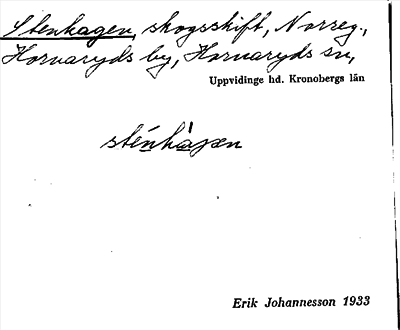 Stenhagen, skogsskift, Norreg.,
Hornaryds by, Hornaryds sn,
Uppvidinge hd. Kronobergs län
sténhàgen
Erik Johannesson 1933